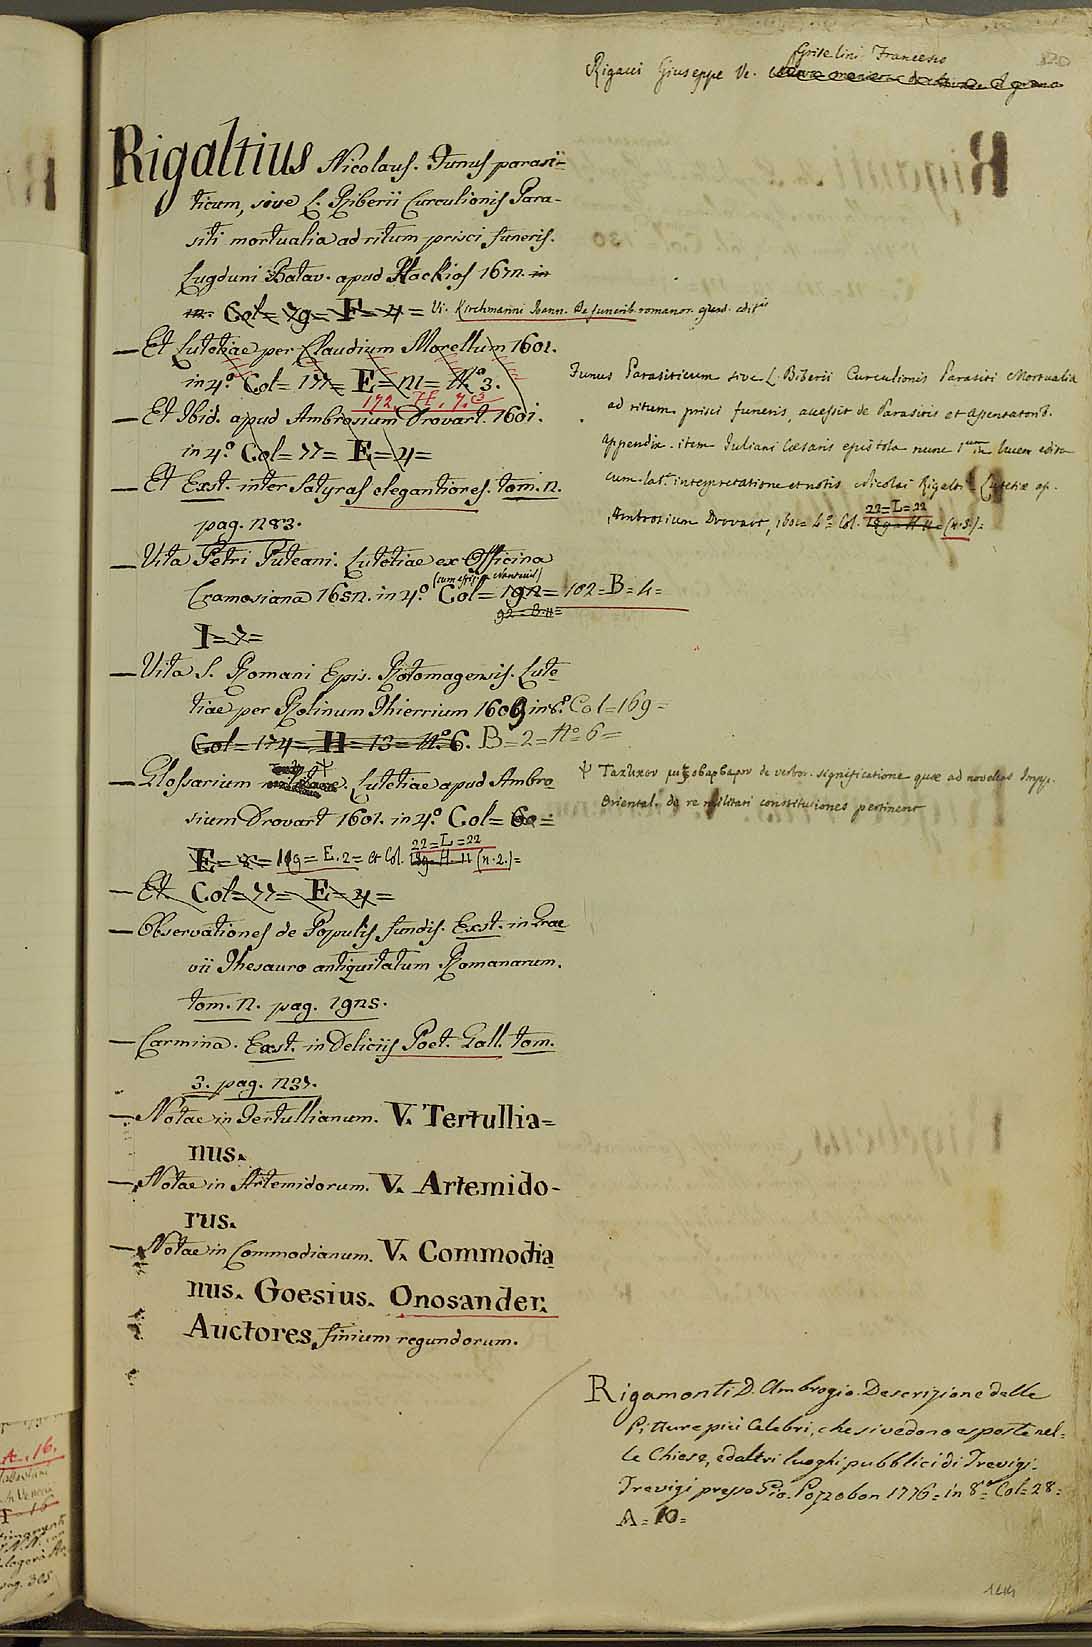 Griselini Francesco
Rigacci Giuseppe V.
320
Rigaltius Nicolaus. Funus parasi-
ticum, sive L. Biberii Curculionis Para-
siti mortualia ad ritum prisci funeris.
Lugduni Batav. apud Hackios 1672. in
12. Col= 79= E= 4= Vi. Kirchmanni Joann. De funerib. romanor. ejusd. edit.is
— Et Lutetiae per Claudium Morellum 1601.
in 4.o Col= 177= E= 11= N.o 3.
172. H. 7. 3
— Et Ibid. apud Ambrosium Drovart. 1601.
in 4.o Col= 77= E= 4=
— Et Exst. inter Satyras elegantiores. tom. 2.
pag. 283.
— Vita Petri Puteani. Lutetiae ex Officina
(cum effig. Nanteuil)
Cramosiana 1652. in 4.o Col= 192= 102=B=4=
92=B.11=
I= 7=
— Vita S. Romani Epis. Rotomagensis. Lute
tiae per Rolinum Thierrium 1609 in 8.o Col=169=
Col= 174= H= 13= N.o 6. B=2=N.o 6=
— Glossarium Ψ. Lutetiae apud Ambro
sium Drovart 1601. in 4.o Col= 60=
22=L=22
E= 8= 119= E. 2= et Col. 189= H. 11 (n. 2.)=
— Et Col= 77= E= 4=
— Observationes de Populis fundis. Exst. in Grae
vii Thesauro antiquitatum Romanarum.
tom. 2. pag. 1925.
— Carmina. Exst. in Deliciis Poet. Gall. tom.
3. pag. 237.
— Notae in Tertullianum. V. Tertullia=
nus.
— Notae in Artemidorum. V. Artemido-
rus.
— Notae in Commodianum. V. Commodia
nus. Goesius. Onosander.
Auctores finium regundorum.
Funus Parasiticum sive L. Biberii Curculionis Parasiti Mortualia
ad ritum prisci funeris, accessit de Parasitis et assentatorib.
appendix. item Juliani Cæsaris epistola nunc 1.um in lucem edita
cum lat. interpretatione et notis Nicolai Rigalti Lutetiæ ap.
22=L=22
Ambrosium Drovart, 1601= 4.o Col. 189= H 11= (n. 3.)=
Ψ Τακτικον μιξοβαρβαρον de verbor. significatione quæ ad novellas Impp.
Oriental. de re militari constitutiones pertinent
Rigamonti D. Ambrogio. Descrizione delle
Pitture più Celebri, che si vedono esposte nel=
le Chiese, ed altri luoghi pubblici di Trevigi.
Trevigi presso Gio. Pozzobon 1776= in 8.o Col=28=
A= 10=
A. 16.
pag. 305